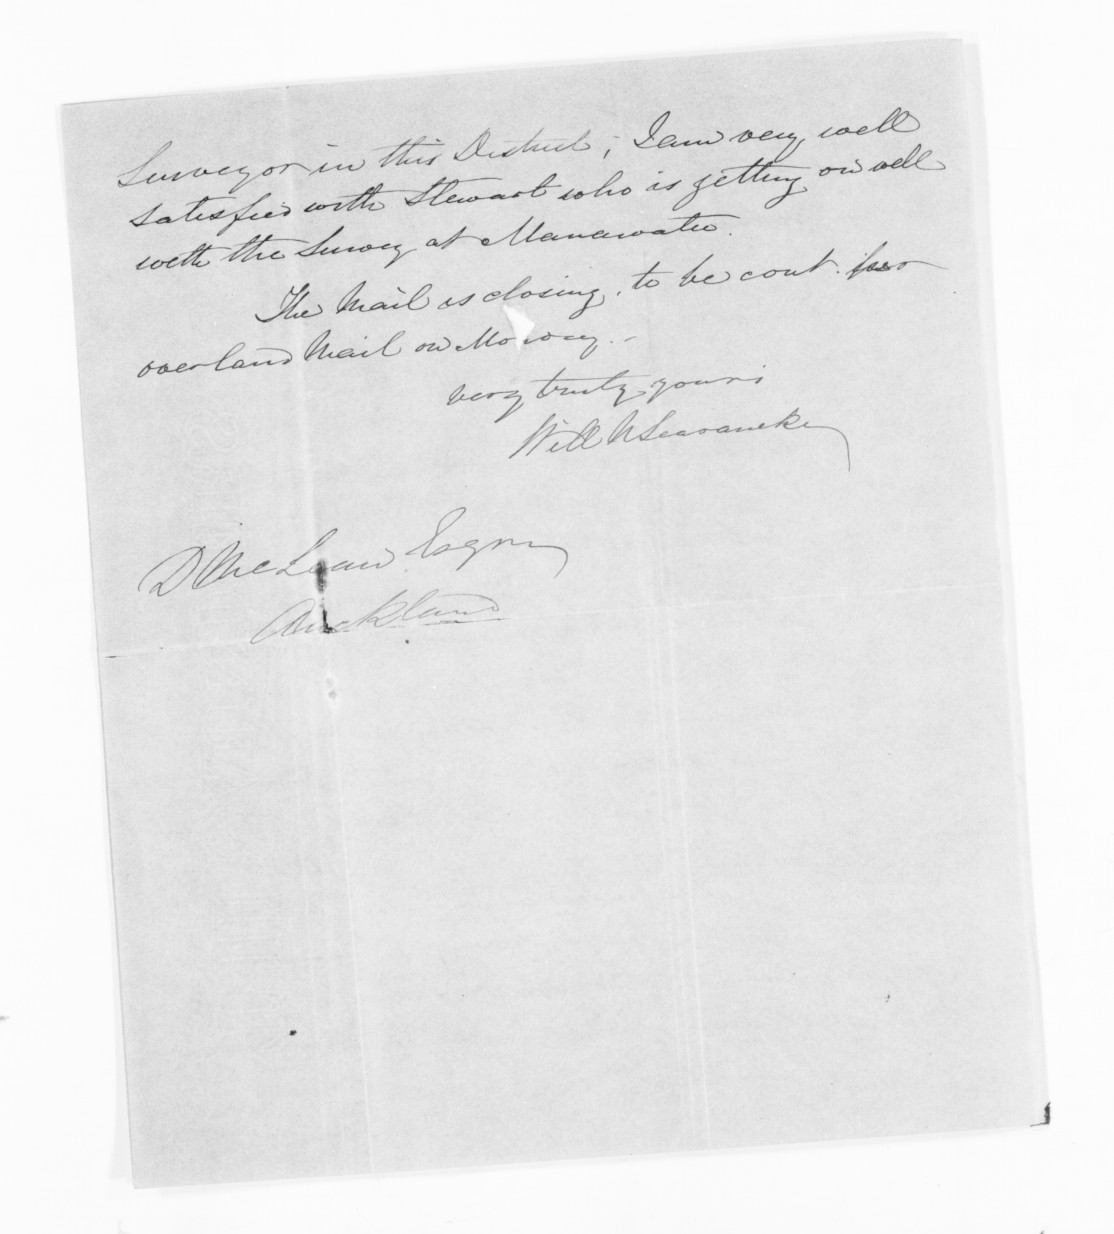 Surveyor in this District; I am very well
satisfied with Stewart who is getting on well
with the Survey at Manawatu.
The Mail is closing. to be cont. per
overland Mail on Monday. -
very truly yours
Will N Searancke
D McLean Esqre
Auckland